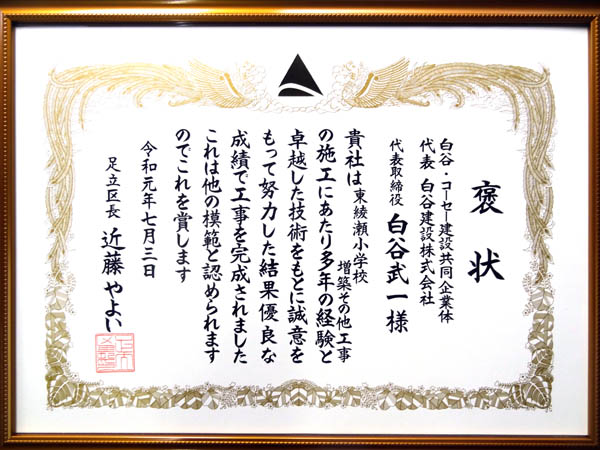 褒状
白谷・コーセー建設共同企業体
代表 白谷建設株式会社
代表取締役 白谷武一様
貴社は東綾瀬小学校増築その他工事
の施工にあたり多年の経験と
卓越した技術をもとに誠意を
もって努力した結果優良な
成績で工事を完成されました
これは他の模範と認められます
のでこれを賞します
令和元年七月三日
足立区長 近藤やよい